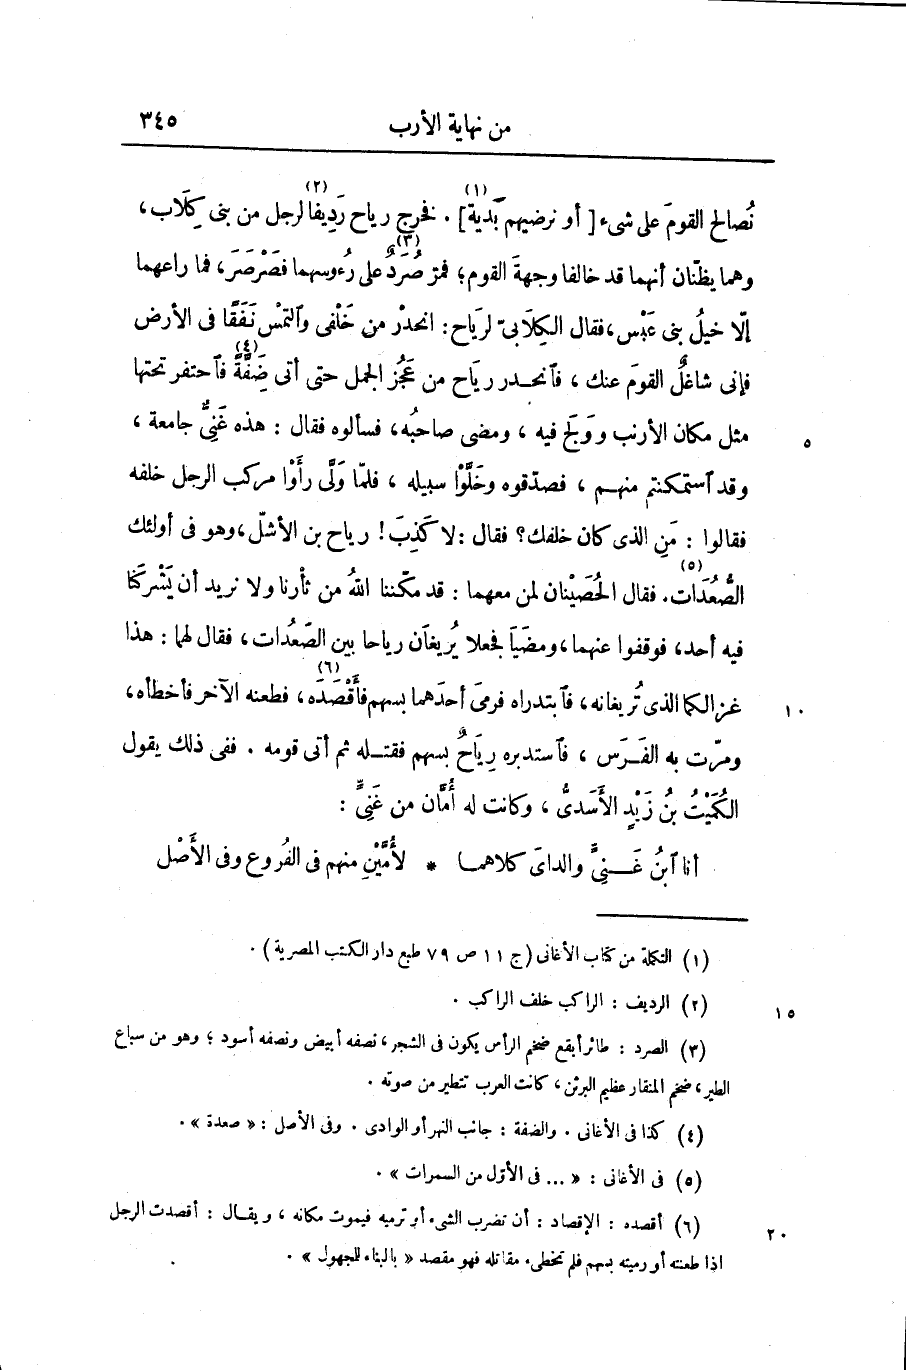 من نهاية الأرب ٣٤٥
نُصالح القومَ على شىء [أو نرضيهم بَدية](١) . فخرج رياح رَدِيفا(٢) لرجل من بنى كِلَاب،
وهما يظنّان أنهما قد خالفا وجهةَ القوم؛ فمرّ صُرَدٌ(٣) على رُءوسهما فصَرْصَرَ، فما راعهما
إلّا خيلُ بنى عَبْس، فقال الكِلَابىّ لرِيَاح: انحدرْ من خَلْفى وٱلتمْس نَفَقًا فى الأرض
فإنى شاغلٌ القومَ عنك، فٱنحدر رياح من عَجُز الجمل حتى أتى ضَِفَّةً(٤) فٱحتفر تحتها
مثل مكان الأرنب ووَلَج فيه، ومضى صاحبُه، فسألوه فقال: هذه غَنِىٌّ جامعة، ٥
وقد ٱستمكنتم منهم، فصدّقوه وخَلَّوْا سبيله، فلمّا وَلَّى رأَوْا مركب الرجل خلفه
فقالوا: مَنِ الذى كان خلفك؟ فقال: لا كَذِبَ! رياح بن الأشلّ، وهو فى أولئك
الصُّعُدَات(٥). فقال الحُصَيْنان لمن معهما: قد مكّننا اللهُ من ثأرنا ولا نريد أن يَشْرَكنا
فيه أحد، فوقفوا عنهما، ومضَيَا فجعلا يُريغان رياحا بين الصَّعُدات، فقال لهما: هذا
غزالكما الذى تُريغانه، فٱبتدراه فرمَى أحدَهما بسهم فأَقْصَدَه(٦)، فطعنه الآخر فأخطأه، ١٠
ومرّت به الفَرَس، فٱستدبره رِيَاحٌ بسهم فقتله ثم أتى قومه. ففى ذلك يقول
الكُمَيْتُ بنُ زَيْدٍ الأَسَدىُّ، وكانت له أُمّان من غَنِىٍّ:
أنا ٱبنُ غَنِىٍّ والداىَ كلاهما * لأُمَّيْنِ منهم فى الفُروع وفى الأَصْل
(١) التكملة من كتاب الأغانى (ج ١١ ص ٧٩ طبع دار الكتب المصرية) .
(٢) الرديف: الراكب خلف الراكب . ١٥
(٣) الصرد: طائر أبقع ضخم الرأس يكون فى الشجر، نصفه أبيض ونصفه أسود؛ وهو من سباع
الطير، ضخم المنقار عظيم البرثن، كانت العرب تتطير من صوته .
(٤) كذا فى الأغانى . والضفة: جانب النهر أو الوادى . وفى الأصل: « صعدة » .
(٥) فى الأغانى: « ... فى الأوّل من السمرات » .
(٦) أقصده: الإقصاد: أن تضرب الشىء أو ترميه فيموت مكانه، ويقال: أقصدت الرجل ٢٠
اذا طعنته أو رميته بسهم فلم تخطىء مقاتله فهو مقصد « بالبناء للجهول » .